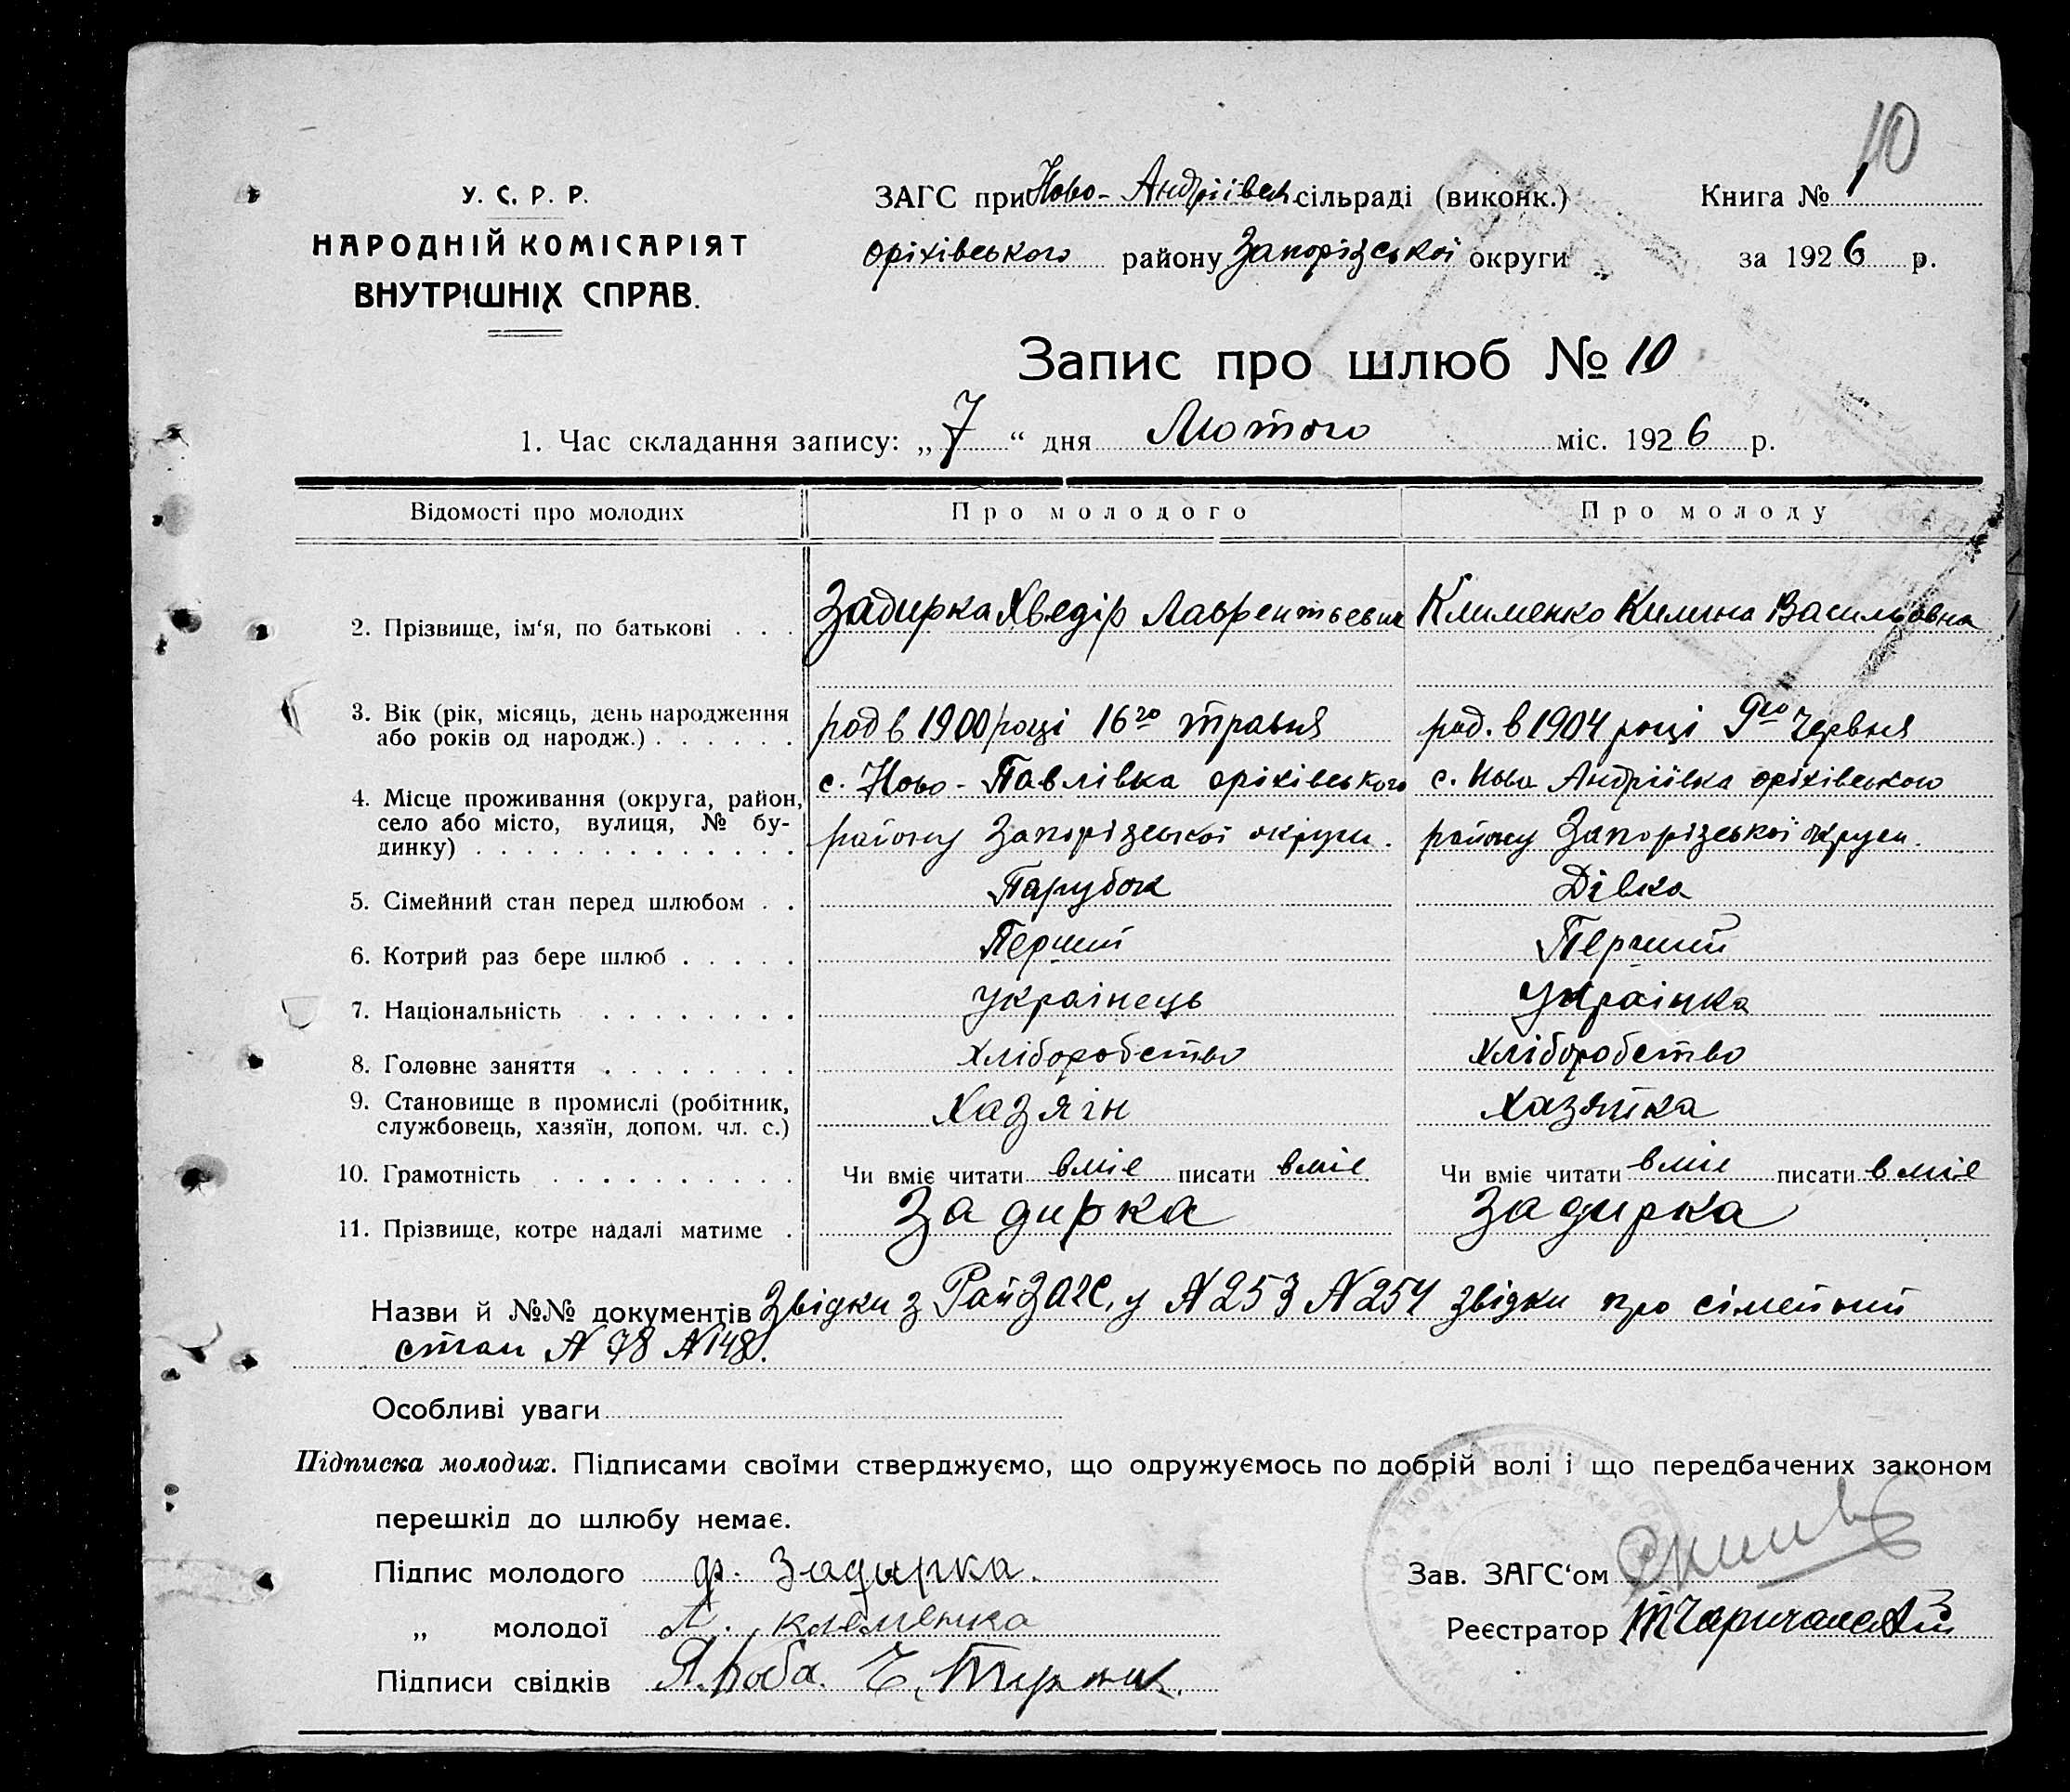 10
У. С. Р. Р.
НАРОДНІЙ КОМІСАРІЯТ
ВНУТРІШНІХ СПРАВ.
ЗАГС при Ново-Андріівськ сільраді (виконк.) Книга № 1
оріхівського району Запорізської округи за 1926 р.
Запис про шлюб № 10
1. Час складання запису: „7“ дня Лютого міс. 1926 р.
Відомості про молодих Про молодого Про молоду
2. Прізвище, ім‘я, по батькові . . . Задирка Хведір Лаврентьевич Клименко Килина Васильовна
3. Вік (рік, місяць, день народження
або років од народж.) . . . . . . род в 1900 році 16го травня род. в 1904 році 9го червня
4. Місце проживання (округа, район, с. Ново-Павлівка оріхівського с. Ново Андріівка оріхівського
село або місто, вулиця, № бу-
динку) . . . . . . . . . . . . . району Запорізської округи. району Запорізської округи.
5. Сімейний стан перед шлюбом . . Парубок Дівка
6. Котрий раз бере шлюб . . . . . Перший Перший
7. Національність . . . . . . . . українець українка
8. Головне заняття . . . . . . . . хліборобство хліборобство
9. Становище в промислі (робітник,
службовець, хазяїн, допом. чл. с.) Хазяін Хазяйка
10. Грамотність . . . . . . . . . . Чи вміє читати вміе писати вміе Чи вміє читати вміе писати вміе
11. Прізвище, котре надалі матиме . Задирка Задирка
Назви й №№ документів Звідки з РайЗАГС,у № 253 № 254 звідки про сімейний
стан № 78 № 148.
Особливі уваги
Підписка молодих. Підписами своїми стверджуємо, що одружуємось по добрій волі і що передбачених законом
перешкід до шлюбу немає.
Підпис молодого ф. Задирка. Зав. ЗАГС‘ом
„ молодої клеменка Реєстратор
Підписи свідків